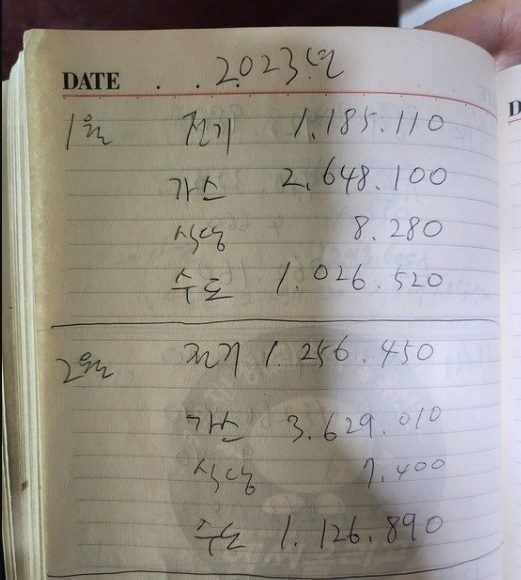 DATE . . . 2023년
1월 전기 1.185.110
가스 2.648.100
식당 8.280
수도 1.026.520
2월 전기 1.256.450
가스 3.629.010
식당 7.400
수도 1.126.890